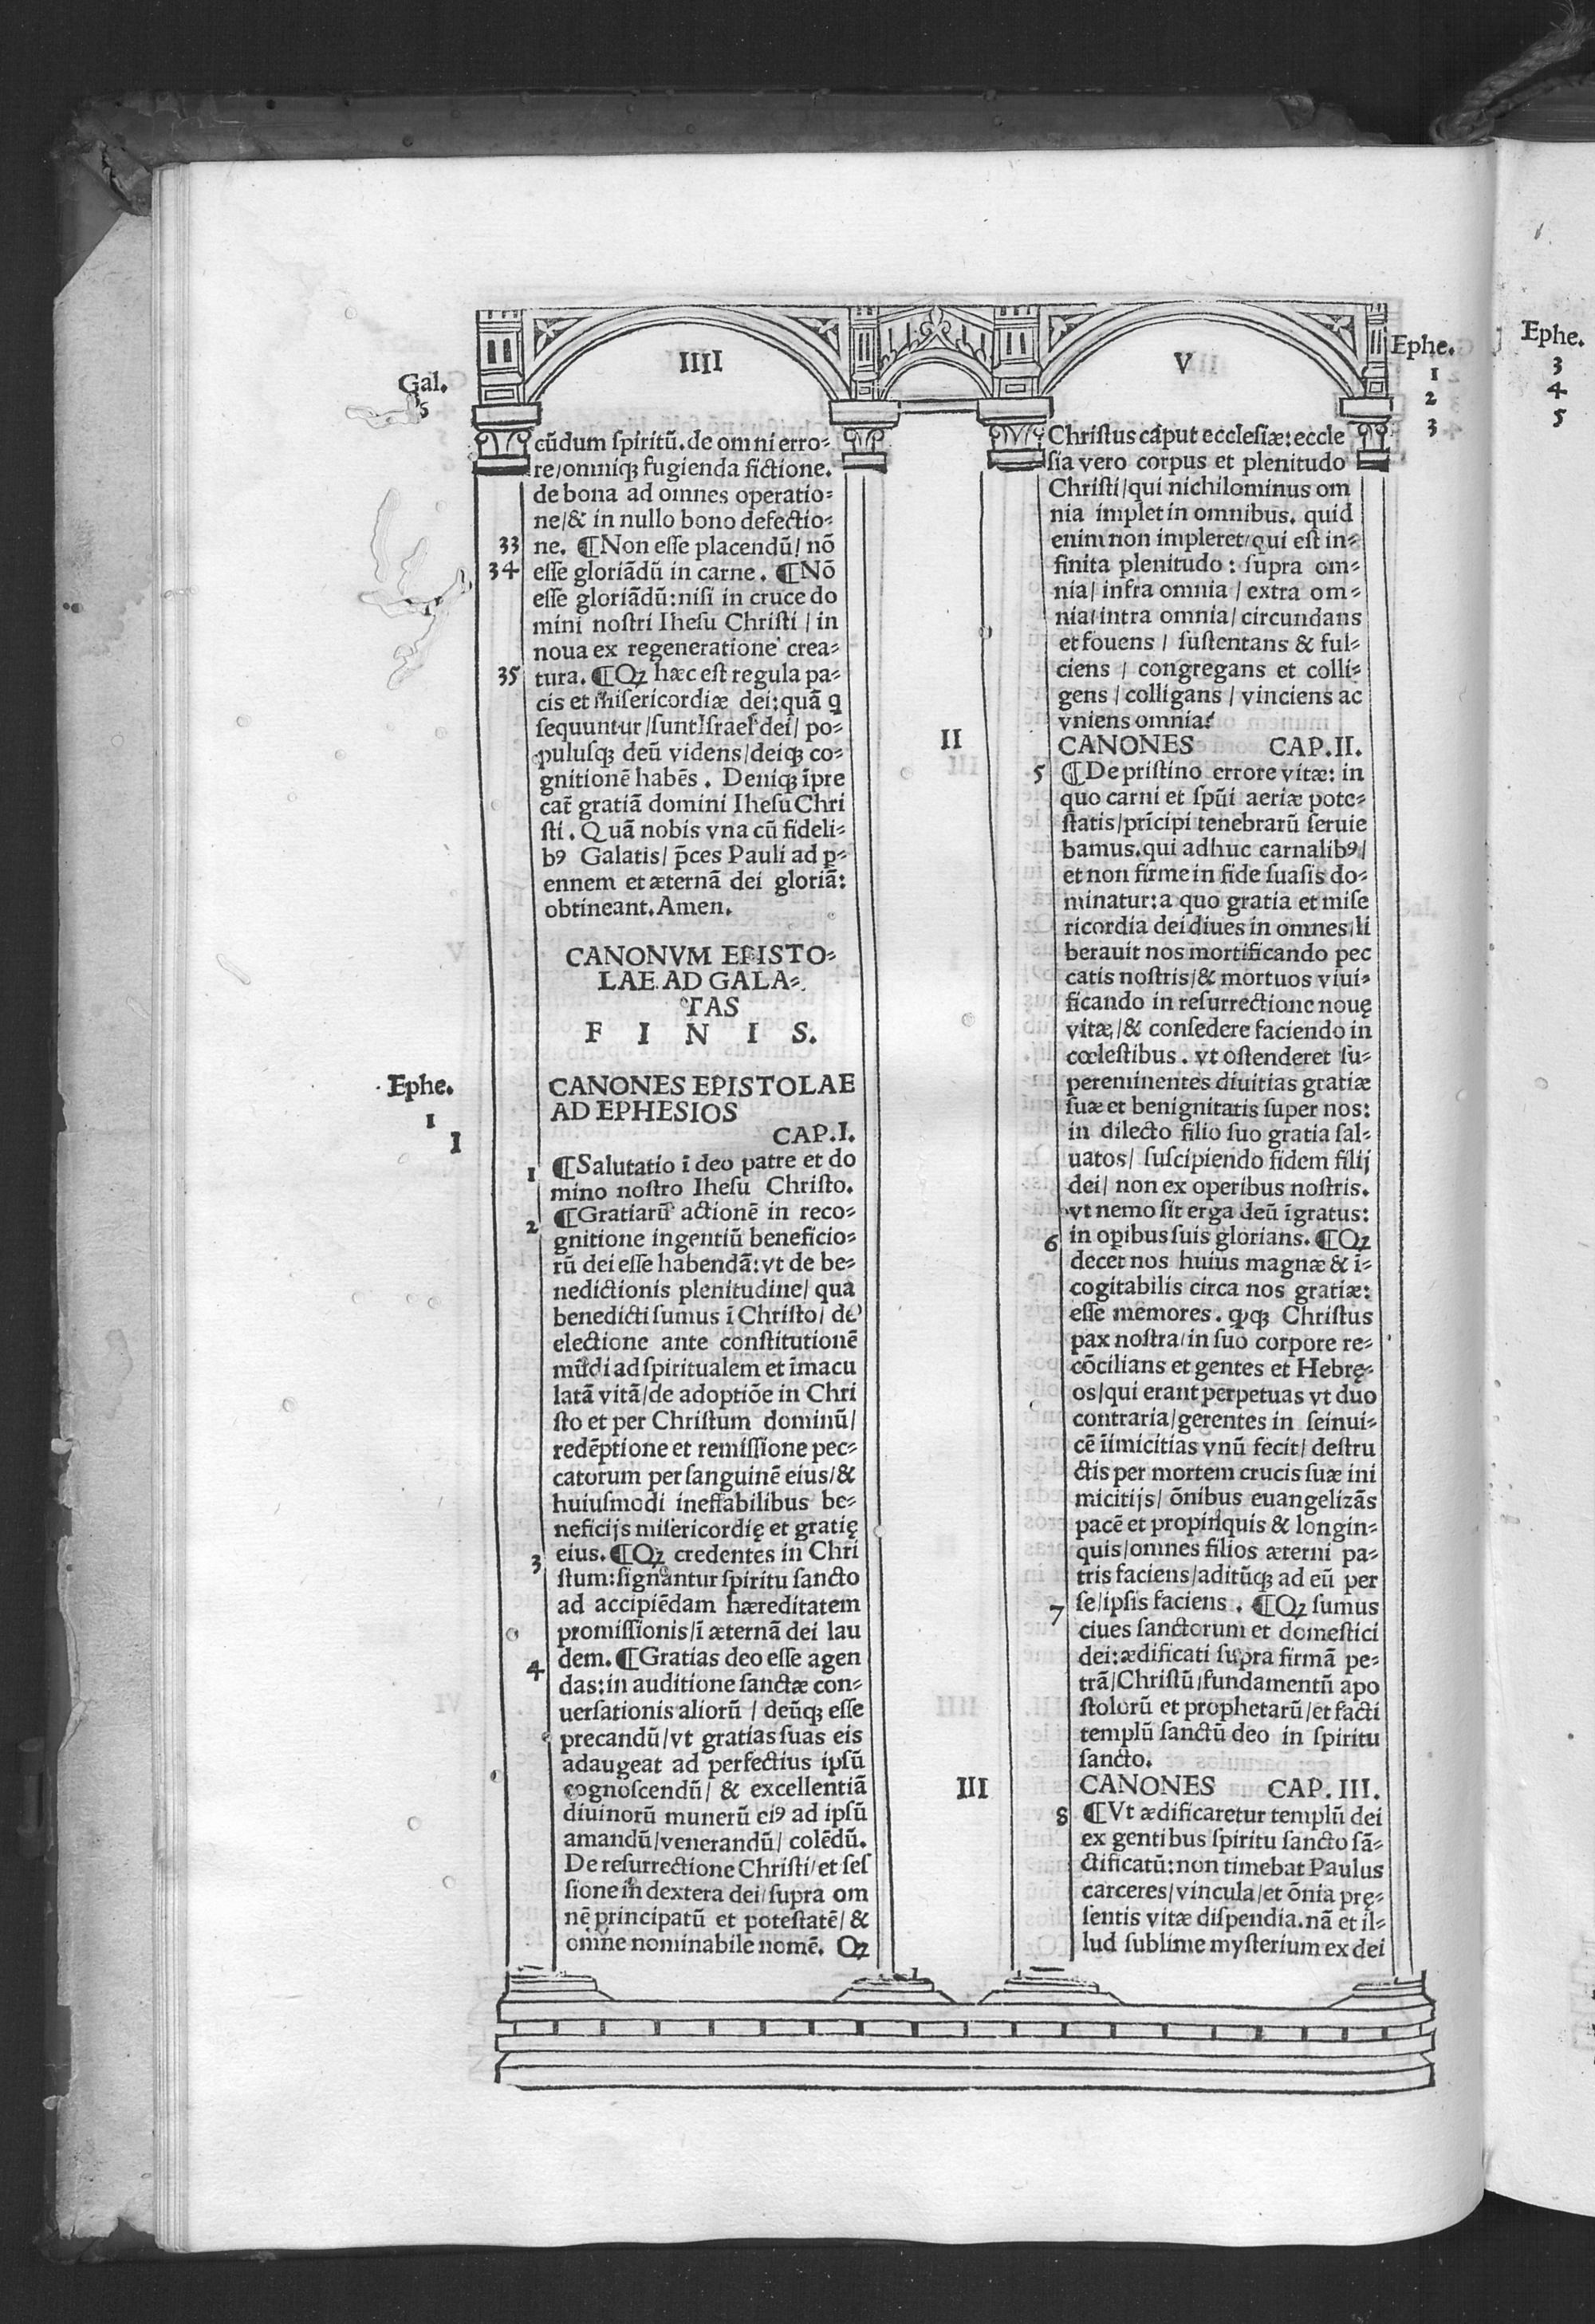 Gal.
5
IIII
cūdum ſpiritū. de omni erro⸗
re/omniqꝫ fugienda fictione.
de bona ad omnes operatio⸗
ne/& in nullo bono defectio⸗
33 ne. ¶Non eſſe placendū/ nō
34 eſſe gloriādū in carne. ¶Nō
eſſe gloriādū: niſi in cruce do
mini noſtri Iheſu Chriſti / in
noua ex regeneratione crea⸗
35 tura. ¶Qꝫ hæc eſt regula pa⸗
cis et miſericordiæ dei: quā q
ſequuntur/ſunt Iſrael dei/ po⸗
puluſqꝫ deū videns/deiqꝫ co⸗
gnitionē habēs. Deniqꝫ īpre
cat̄ gratiā domini Iheſu Chri
ſti. Quā nobis vna cū fideli⸗
bꝰ Galatis/ p̄ces Pauli ad ꝑ⸗
ennem et æternā dei gloriā:
obtineant. Amen.
CANONVM EPISTO⸗
LAE AD GALA⸗
TAS
F I N I S.
Ephe.
1
I
CANONES EPISTOLAE
AD EPHESIOS
CAP. I.
1 ¶Salutatio ī deo patre et do
mino noſtro Iheſu Chriſto.
2 ¶Gratiarū actionē in reco⸗
gnitione ingentiū beneficio⸗
rū dei eſſe habendā: vt de be⸗
nedictionis plenitudine/ qua
benedicti ſumus ī Chriſto/ de
electione ante conſtitutionē
mūdi ad ſpiritualem et īmacu
latā vitā/de adoptiōe in Chri
ſto et per Chriſtum dominū/
redēptione et remiſſione pec⸗
catorum per ſanguinē eius/&
huiuſmodi ineffabilibus be⸗
neficijs miſericordię et gratię
3 eius. ¶Qꝫ credentes in Chri
ſtum: ſignantur ſpiritu ſancto
ad accipiēdam hæreditatem
promiſſionis/ī æternā dei lau
4 dem. ¶Gratias deo eſſe agen
das: in auditione ſanctæ con⸗
uerſationis aliorū / deūqꝫ eſſe
precandū/vt gratias ſuas eis
adaugeat ad perfectius ipſū
cognoſcendū/ & excellentiā
diuinorū munerū eiꝰ ad ipſū
amandū/venerandū/ colēdū.
De reſurrectione Chriſti/et ſeſ
ſione in dextera dei/ſupra om
nē principatū et poteſtatē/ &
omne nominabile nomē. Qꝫ
Ephe.
1
2
3
V
Chriſtus caput eccleſiæ: eccle
ſia vero corpus et plenitudo
Chriſti/qui nichilominus om
nia implet in omnibus. quid
enim non impleret/qui eſt in⸗
finita plenitudo: ſupra om⸗
nia/ infra omnia / extra om⸗
nia/intra omnia/ circundans
et fouens / ſuſtentans & ful⸗
ciens / congregans et colli⸗
gens / colligans / vinciens ac
vniens omnia?
II
CANONES CAP. II.
5 ¶De priſtino errore vitæ: in
quo carni et ſpūi aeriæ pote⸗
ſtatis/prīcipi tenebrarū ſeruie
bamus. qui adhuc carnalibꝰ/
et non firme in fide ſuaſis do⸗
minatur: a quo gratia et miſe
ricordia dei diues in omnes/li
berauit nos mortificando pec
catis noſtris/& mortuos viui⸗
ficando in reſurrectione nouę
vitæ/& conſedere faciendo in
cœleſtibus. vt oſtenderet ſu⸗
pereminentes diuitias gratiæ
ſuæ et benignitatis ſuper nos:
in dilecto filio ſuo gratia ſal⸗
uatos/ ſuſcipiendo fidem filij
dei/ non ex operibus noſtris.
vt nemo ſit erga deū īgratus:
6 in oꝑibus ſuis glorians. ¶Qꝫ
decet nos huius magnæ & ī⸗
cogitabilis circa nos gratiæ:
eſſe memores. ꝙqꝫ Chriſtus
pax noſtra/in ſuo corpore re⸗
cōcilians et gentes et Hebrę⸗
os/qui erant perpetuas vt duo
contraria/gerentes in ſeinui⸗
cē īimicitias vnū fecit/ deſtru
ctis per mortem crucis ſuæ ini
micitijs/ ōnibus euangelizās
pacē et propinquis & longin⸗
quis/omnes filios æterni pa⸗
tris faciens/aditūqꝫ ad eū per
7 ſe/ipſis faciens. ¶Qꝫ ſumus
ciues ſanctorum et domeſtici
dei: ædificati ſupra firmā pe⸗
trā/Chriſtū/fundamentū apo
ſtolorū et prophetarū/et facti
templū ſanctū deo in ſpiritu
ſancto.
III
CANONES CAP. III.
8 ¶Vt ædificaretur templū dei
ex gentibus ſpiritu ſancto ſā⸗
ctificatū: non timebat Paulus
carceres/vincula/et ōnia prę⸗
ſentis vitæ diſpendia. nā et il⸗
lud ſublime myſterium ex dei
Ephe.
3
4
5